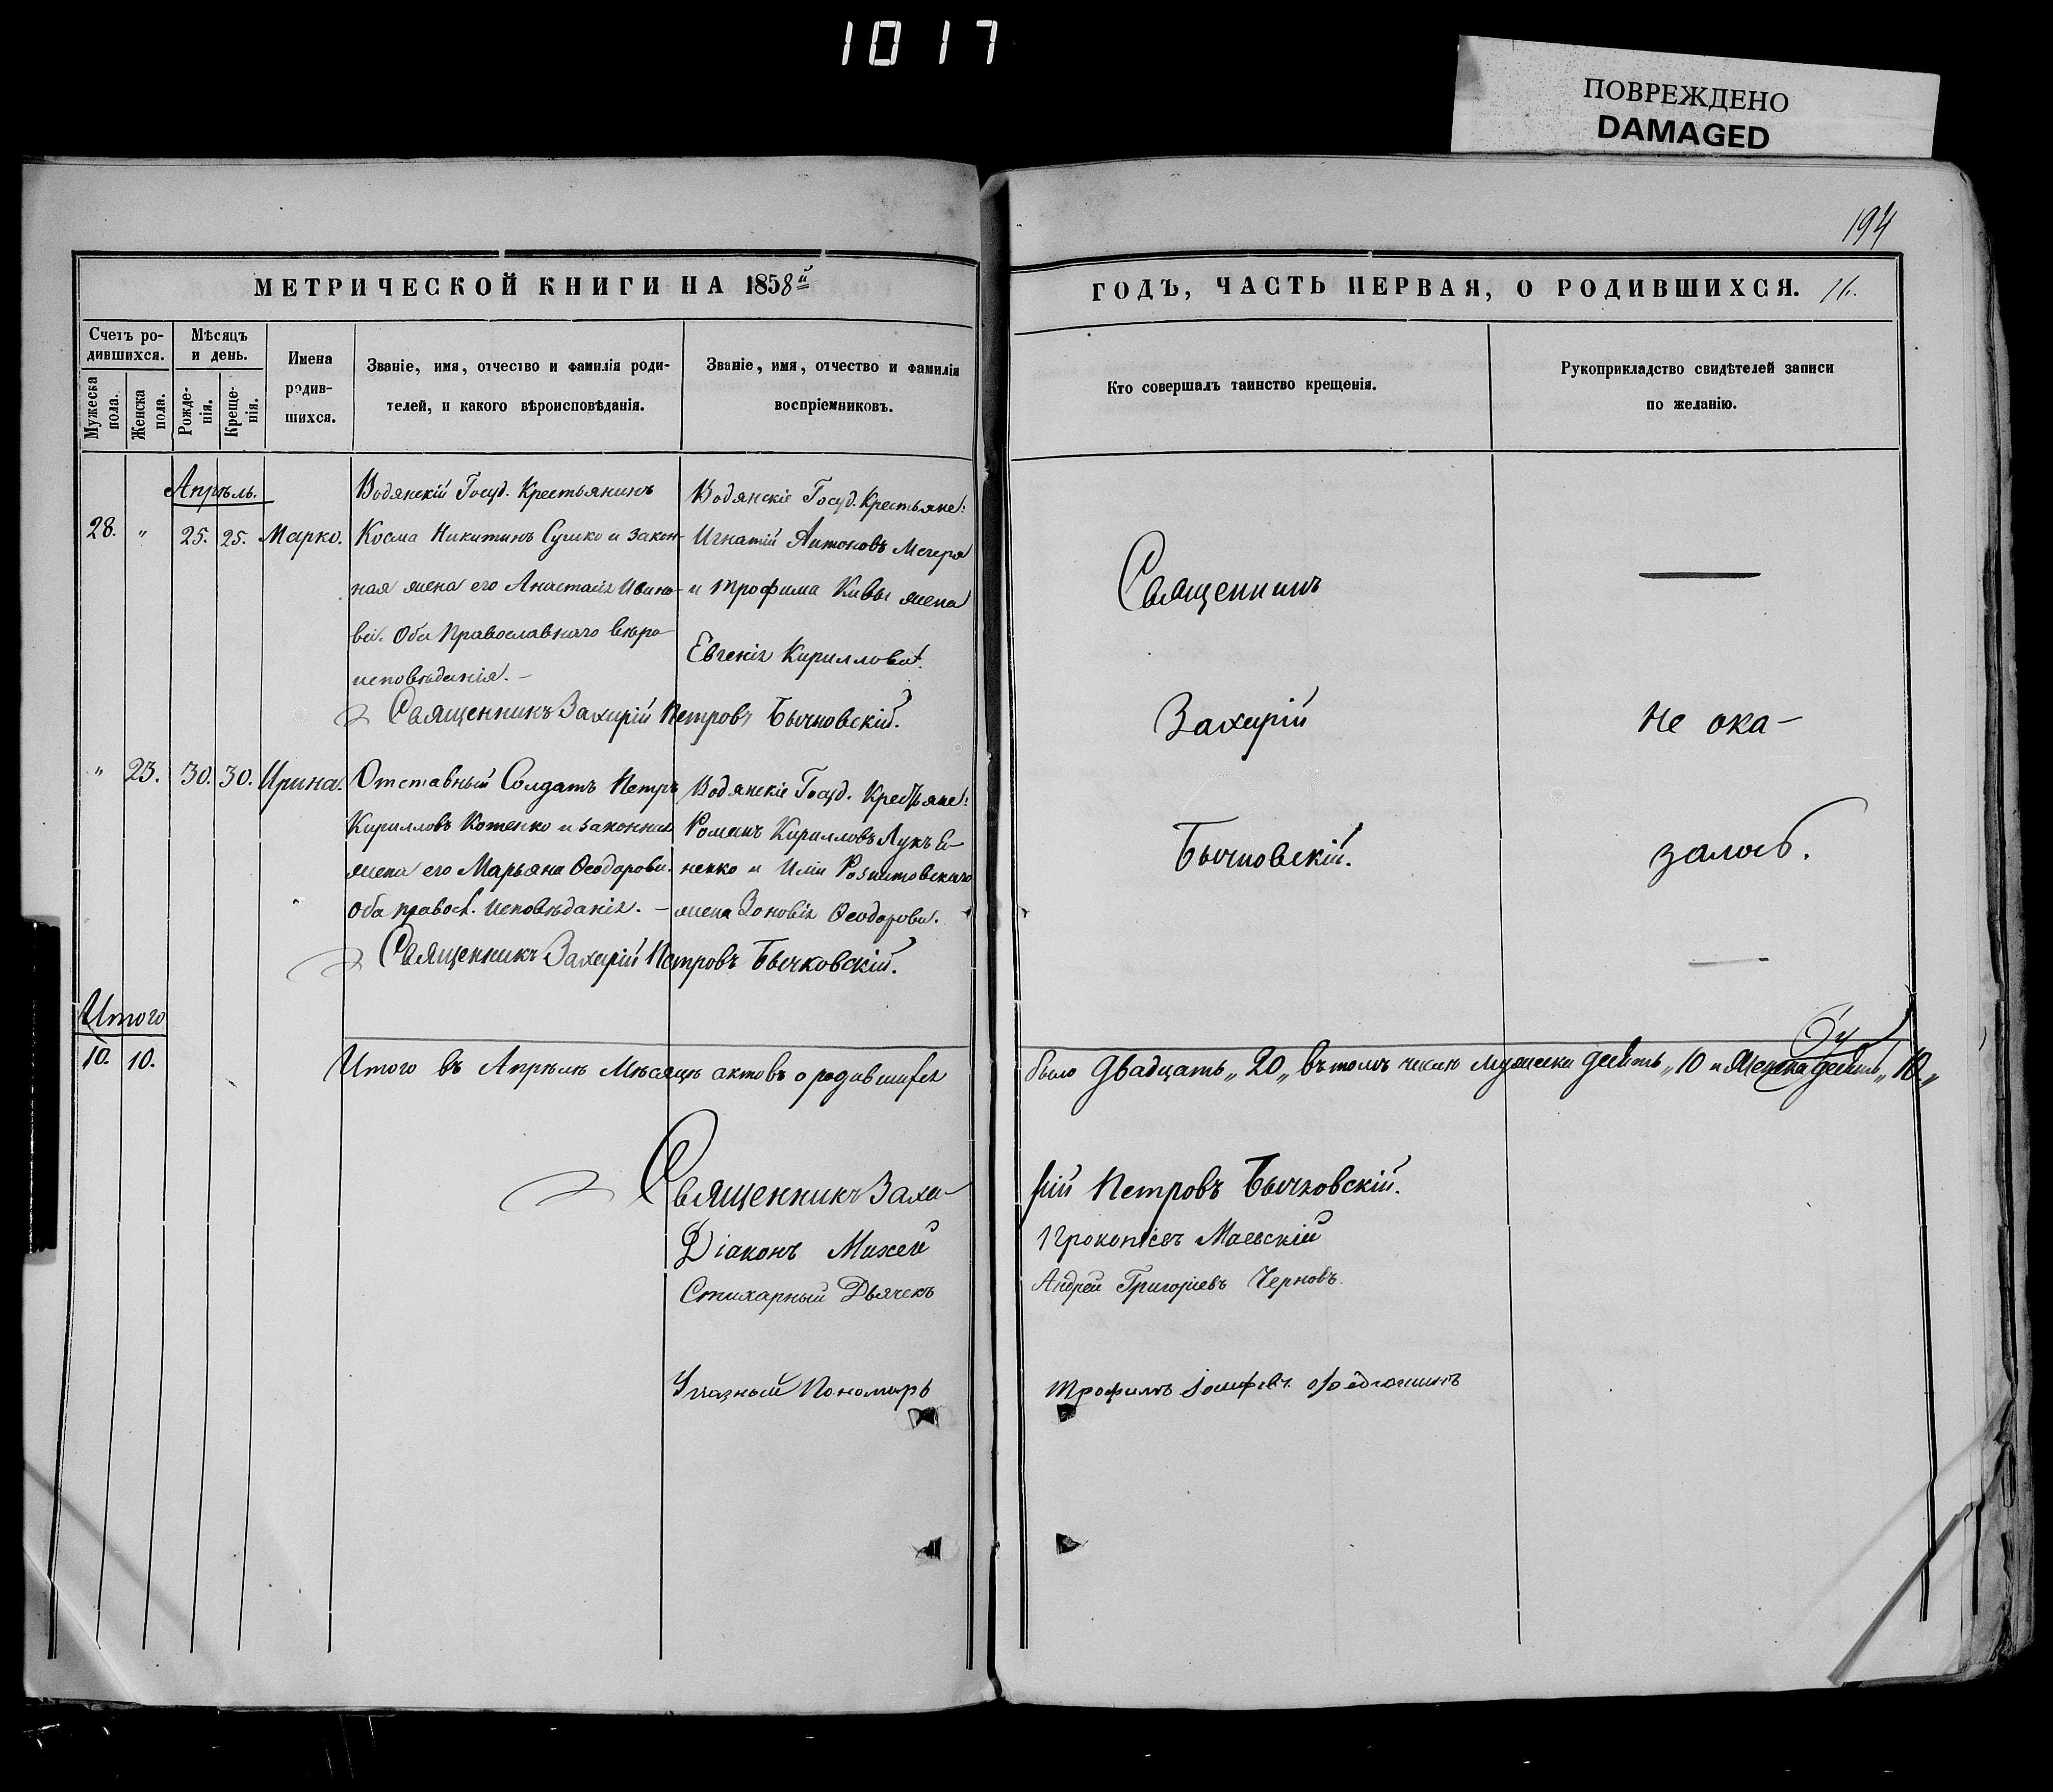 1017
ПОВРЕЖДЕНО
DAMAGED
194
МЕТРИЧЕСКОЙ КНИГИ НА 1858й
ГОДЪ, ЧАСТЬ ПЕРВАЯ, О РОДИВШИХСЯ. 11.
Счетъ ро-
дившихся.
Мужеска пола.
Женска пола.
Мѣсяцъ
и день.
Рожде-
нія.
Креще-
нія.
Имена
родив-
шихся.
Званіе, имя, отчество и фамилія роди-
телей, и какого вѣроисповѣданія.
Званіе, имя, отчество и фамилія
воспріемниковъ.
Кто совершалъ таинство крещенія.
Рукоприкладство свидѣтелей записи
по желанію.
Апрѣль.
28. " 25. 25. Марко.
Водянскій Госуд. Крестьянинъ
Косма Никитинъ Сушко и закон-
ная жена его Анастасія Ивано-
ва. Оба Православнаго вѣро-
исповѣданія. –
Водянскіе Госуд. Крестьяне:
Игнатій Антоновъ Мечеря
и Трофима Кивы жена
Евгенія Кириллова.
Священникъ Захарій Петровъ Бычковскій.
" 23. 30. 30. Ирина.
Отставный Солдатъ Петръ
Кирилловъ Котенко и законная
жена его Марьяна Ѳеодорова.
Оба правос. исповѣданія. –
Водянскіе Госуд. Крестьяне:
Романъ Кирилловъ Лукъ
ненко и
жена Зеновія Ѳеодорова.
Священникъ Захарій Петровъ Бычковскій.
Священникъ
Захарій
Бычковскій.
Не ока-
залось.
Итого
10. 10.
Итого въ Апрѣлѣ Мѣсяцѣ актовъ о родившихся
было двадцать „20„ въ томъ числѣ мужеска десять „10 и женска десять „10.„
Священникъ Заха-
рій Петровъ Бычковскій.
Діаконъ Михей
Прокопіевъ Маевскій
Стихарный Дьячекъ
Андрей Григоріевъ Черновъ.
Указный Пономарь
Трофимъ